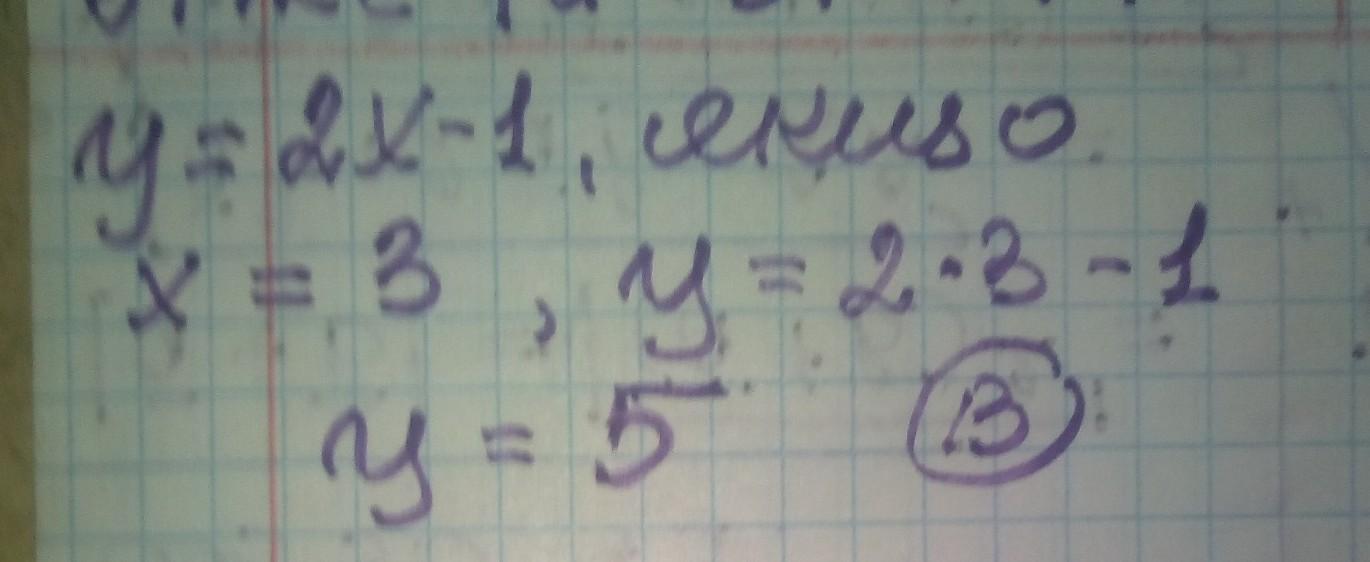 y = 2x - 1, якщо
x = 3, y = 2 · 3 - 1
y = 5 В